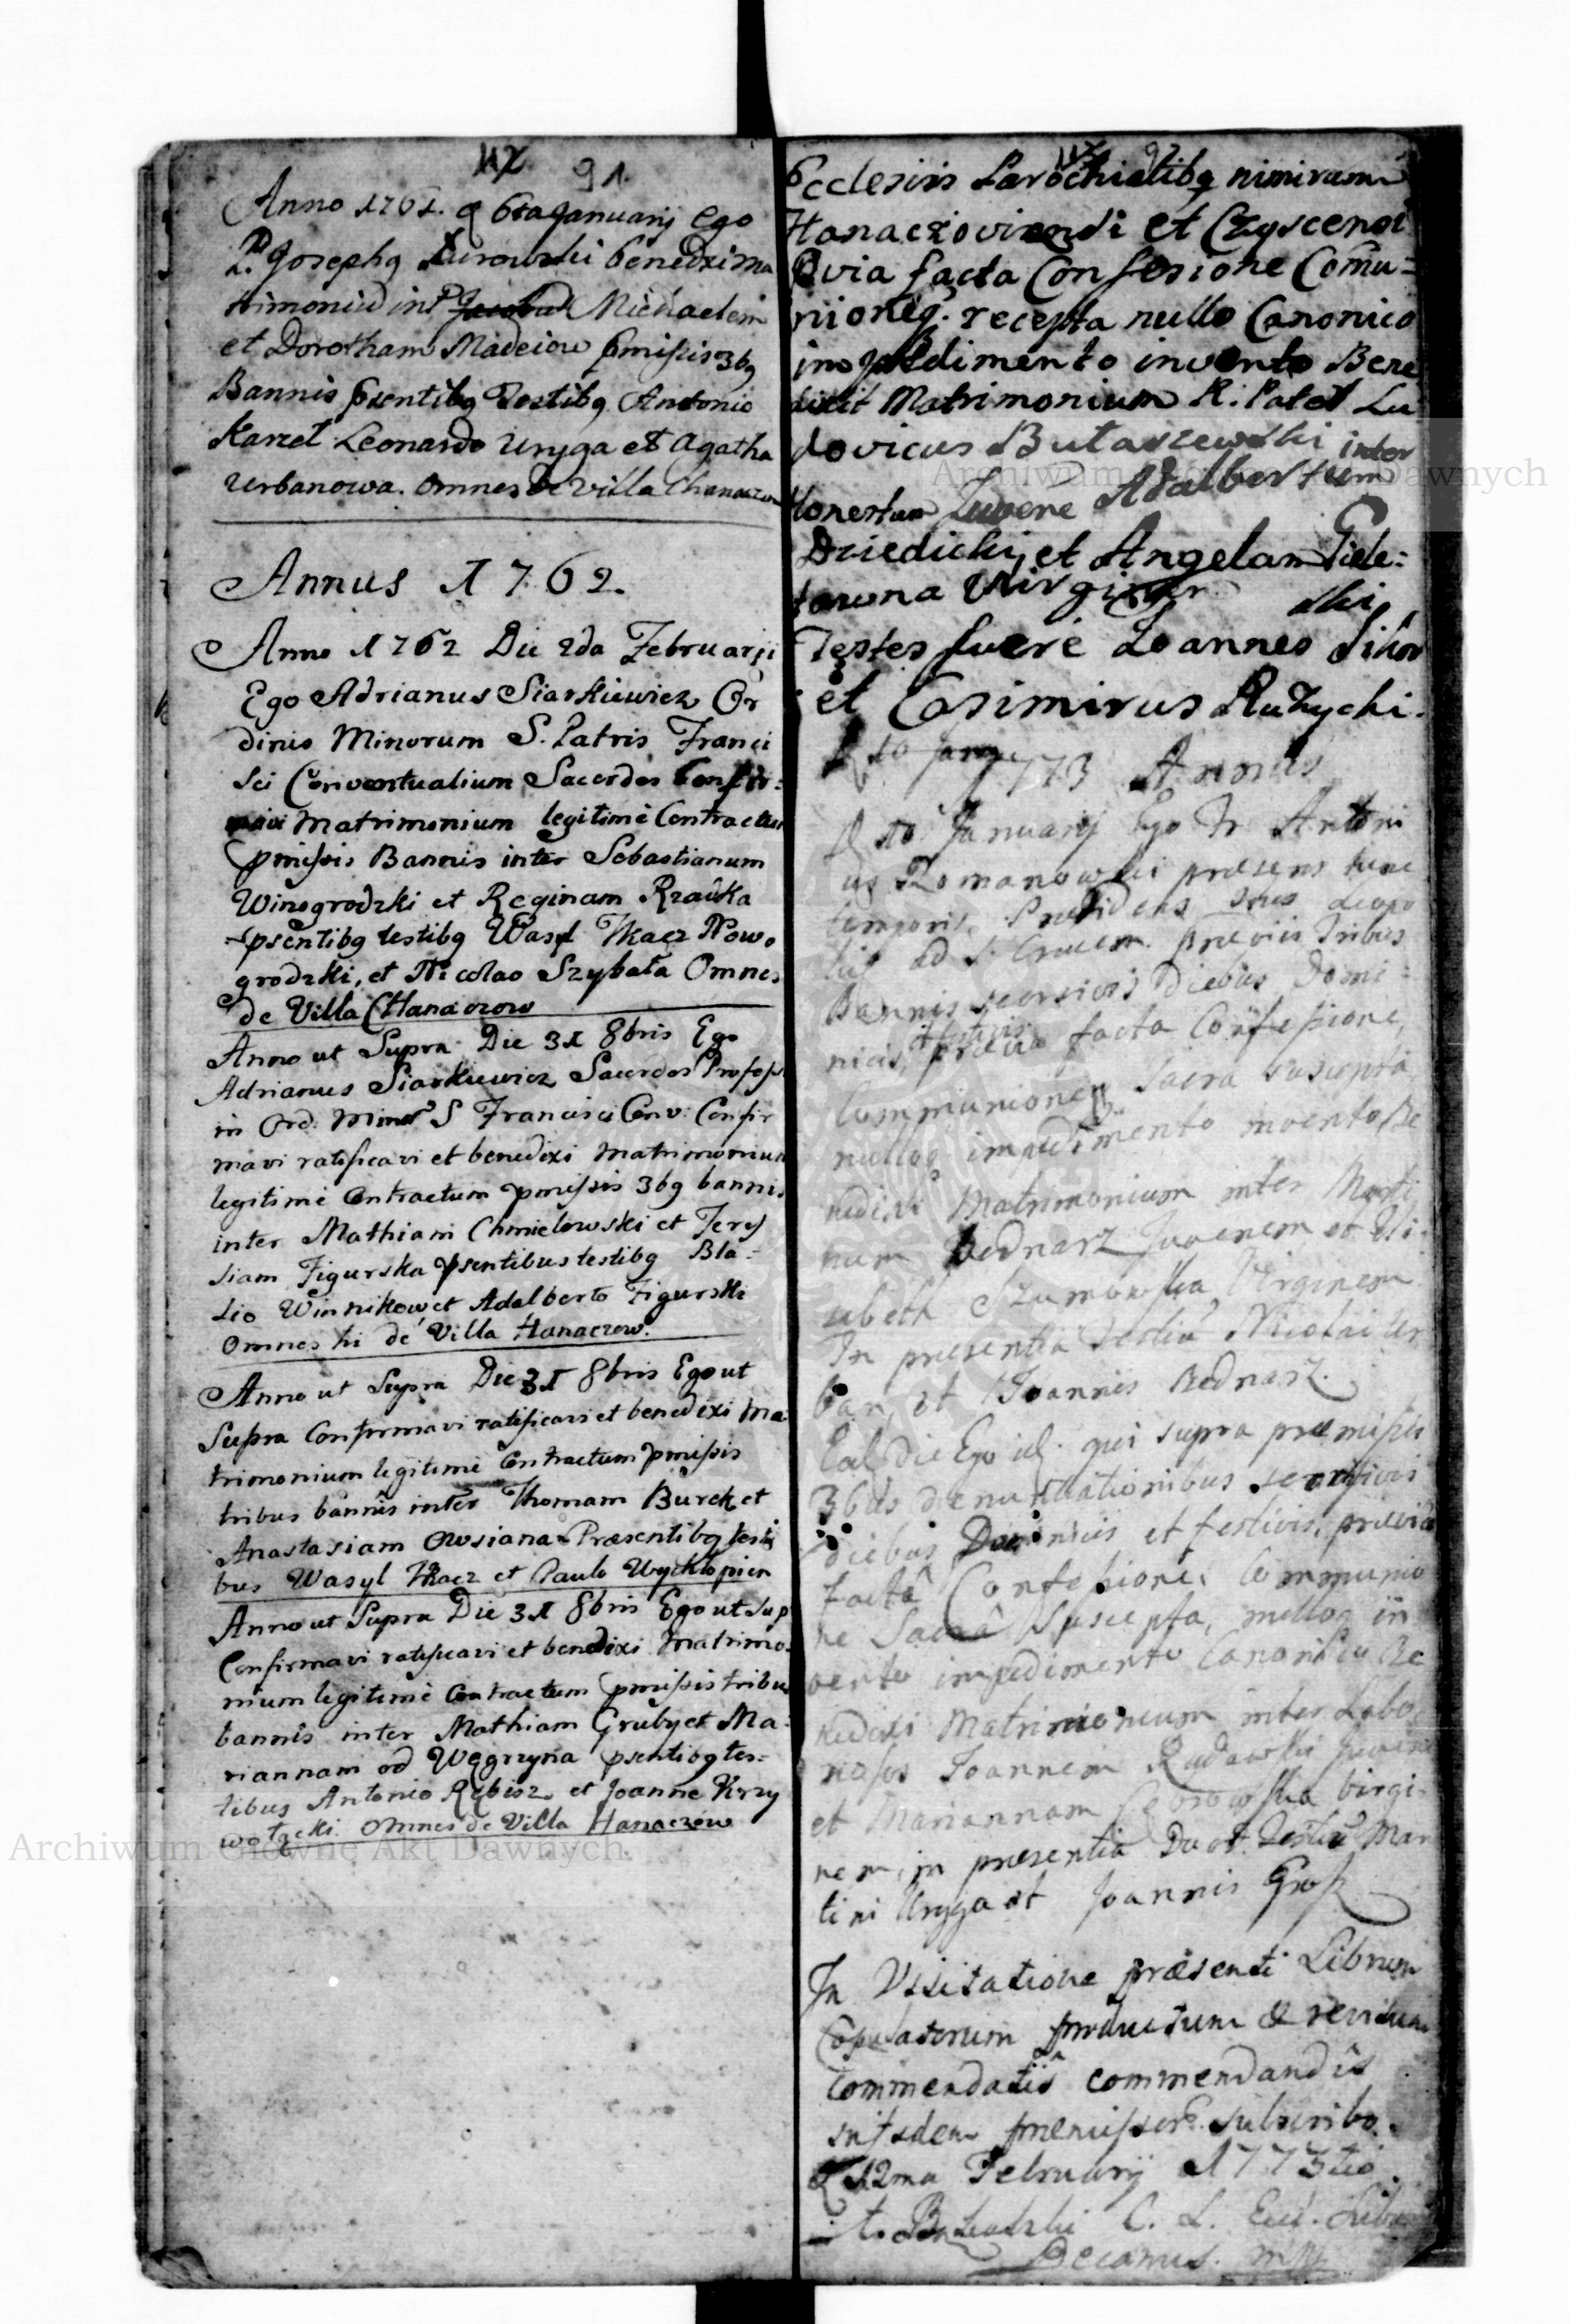 91.
Anno 1761. d 6ta Januarij Ego
P. Josephq Benedixi ma
trimoniu int Michaelem
et Dorotheam Madeiow pmissis 3bq
Bannis psentibq Testibq Antonio
Karzel Leonardo Uryga et Agatha
Urbanowa. Omnes de Villa Chanaczow
Annus 1762.
Anno 1762 Die 2da Februarji
Ego Adrianus Siarkiewicz Or
dinis Minorum S. Patris Franci
sci Conventualium Sacerdos Confir=
mavi Matrimonium legitimè Contractum
pmissis Bannis inter Sebastianum
Winogrodzki et Reginam Rzaúka
psentibq testibq Wasyl Tkacz Nowo
grodzki, et Nicolao Szybała Omnes
de Villa CHanaczow
Anno ut Supra Die 31 8bris Ego
Adrianus Siarkiewicz Sacerdos Profess
in Ord: Minor S Francisci Conv: Confir
mavi ratificavi et benedixi Matrimonium
legitimè Contractum pmissis 3bq bannis
inter Mathiam Chmielowski et Tere
siam Figurska psentibus testibq Bla=
sio Winnikow et Adalberto Figurski
Omnes hi de Villa Hanaczow.
Anno ut Supra Die 31 8bris Ego ut
Supra Confirmavi ratificavi et benedixi Ma
trimonium legitimè Contractum pmissis
tribus bannis inter Thomam Burek et
Anastasiam Owsiana Præsentibq testi
bus Wasyl Tkacz et Paulo Wychłopien
Anno ut Supra Die 31 8bris Ego ut Sup
Confirmavi ratificavi et benedixi Matrimo
nium legitimè Contractum pmissis tribus
bannis inter Mathiam Gruby et Ma=
riannam od Węgrzyna psentibq tes=
tibus Antonio Rębisz et Joanne Krzy
wołącki Omnes de Villa Hanaczow
Ecclesiis Parochialibq nimirum
Hanaczoviensi et
Pvia facta Confesione Comu=
nioneq. recepta nullo Canonico
impedimento invento Bene
dixit Matrimonium R. Pater Lu
dovicus Butaszewski inter
Honestum Juvene Adalbertum
Dziedicki, et Angelam Piele=
towna Virginem
Testes fuere Joannes Sikor
ski,
et Casimirus Ruzycki.
1773 Annus
d 10 Januarij Ego Fr Antoni
us Romanowski præsens tunc
temporis Præsidens
ad S. Crucem. præviis Tribus
Bannis diebus Domi=
nicis, festivis prævia facta Confessione,
Communioneq Sacra suscepta
nulloq impedimento invento Be
nedixi Matrimonium inter Marti
num Bednarz Juvenem et Eli=
sabeth Szumowska Virginem
In præsentia Testiu Nicolai Ur
ban, et Joannis Bednarz.
Ead die Ego id. qui supra præmissis
3bus denuntiationibus
diebus Dominicis et festivis, prævia
facta Confessione, Communio
ne Sacra suscepta, nulloq in
vento impedimento Canonico Be
nedixi Matrimonium inter Labo
riosos Joannem Rudawski Juvenem
et Mariannam virgi=
nem, in præsentia Duor Testiu Mar
tini Uryga et Joannis Gross
In Visitatione præsenti Librum
Copulatorum productum & revisum
commendatis commendandis
præmissor. subscribo.
d 12ma Februarij 1773tio
C. L. Eccl.
Decanus. mpp
Archiwum Główne Akt Dawnych
Archiwum Główne Akt Dawnych